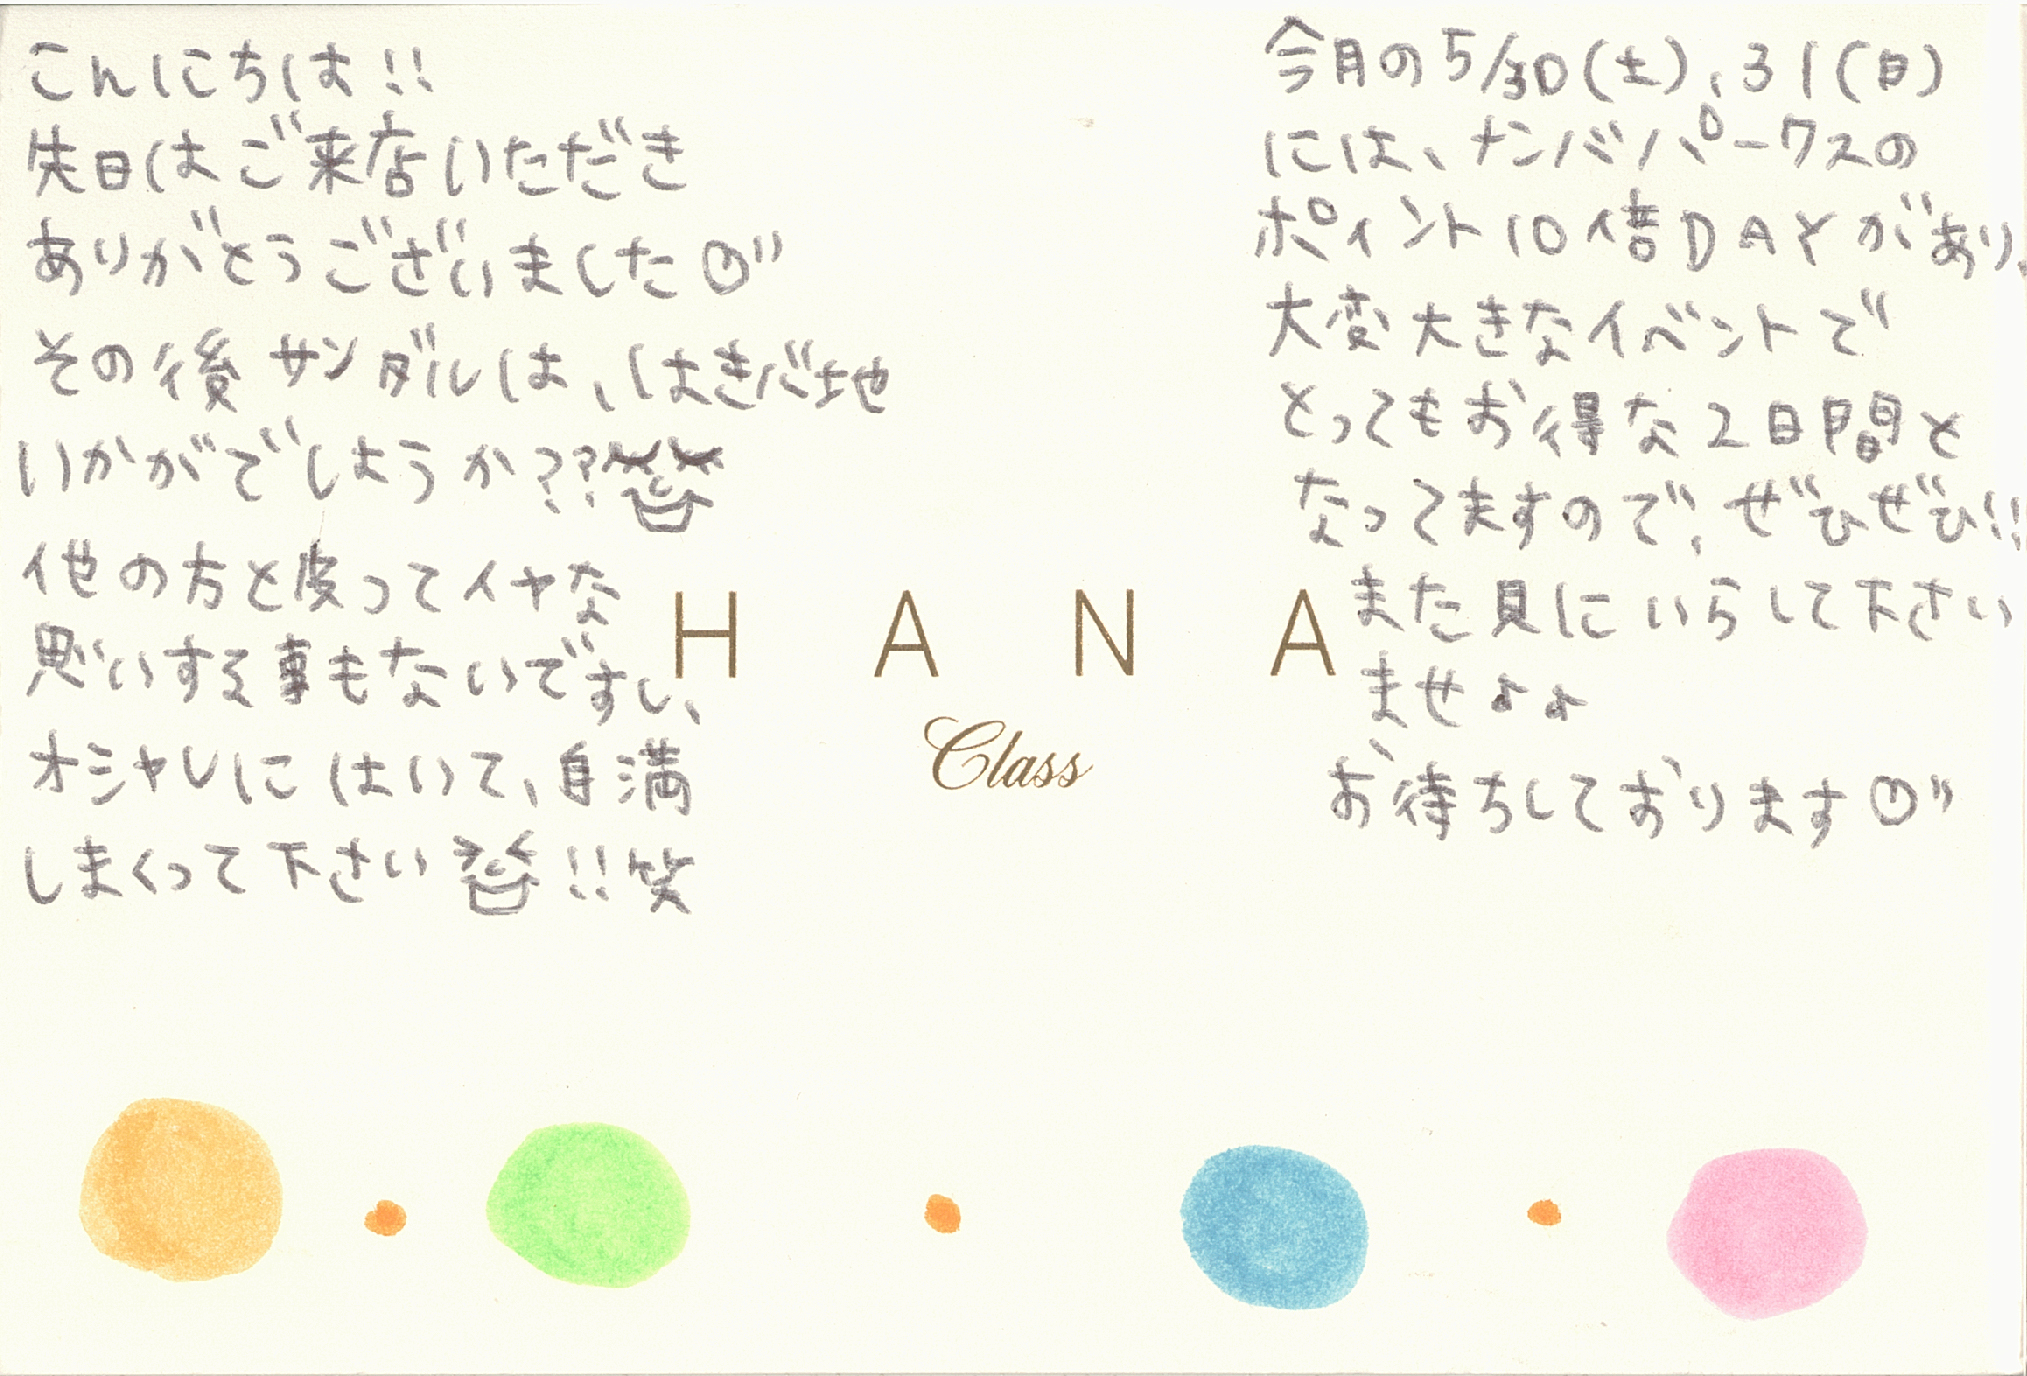 こんにちは!!
先日はご来店いただき
ありがとうございました
その後サンダルは、はきバ地
いかがでしょうか??
他の方と皮ってイヤな
思いする事もないですし、
オシャレにはいて、自満
しまくって下さい!!笑
HANA
Class
今月の5/30(土)、31(日)
には、ナンバパークスの
ポイント10倍DAYがあり、
大変大きなイベントで
とってもお得な2日間と
なってますので、ぜひぜひ!!
また見にいらして下さい
ませ♪♪
お待ちしております